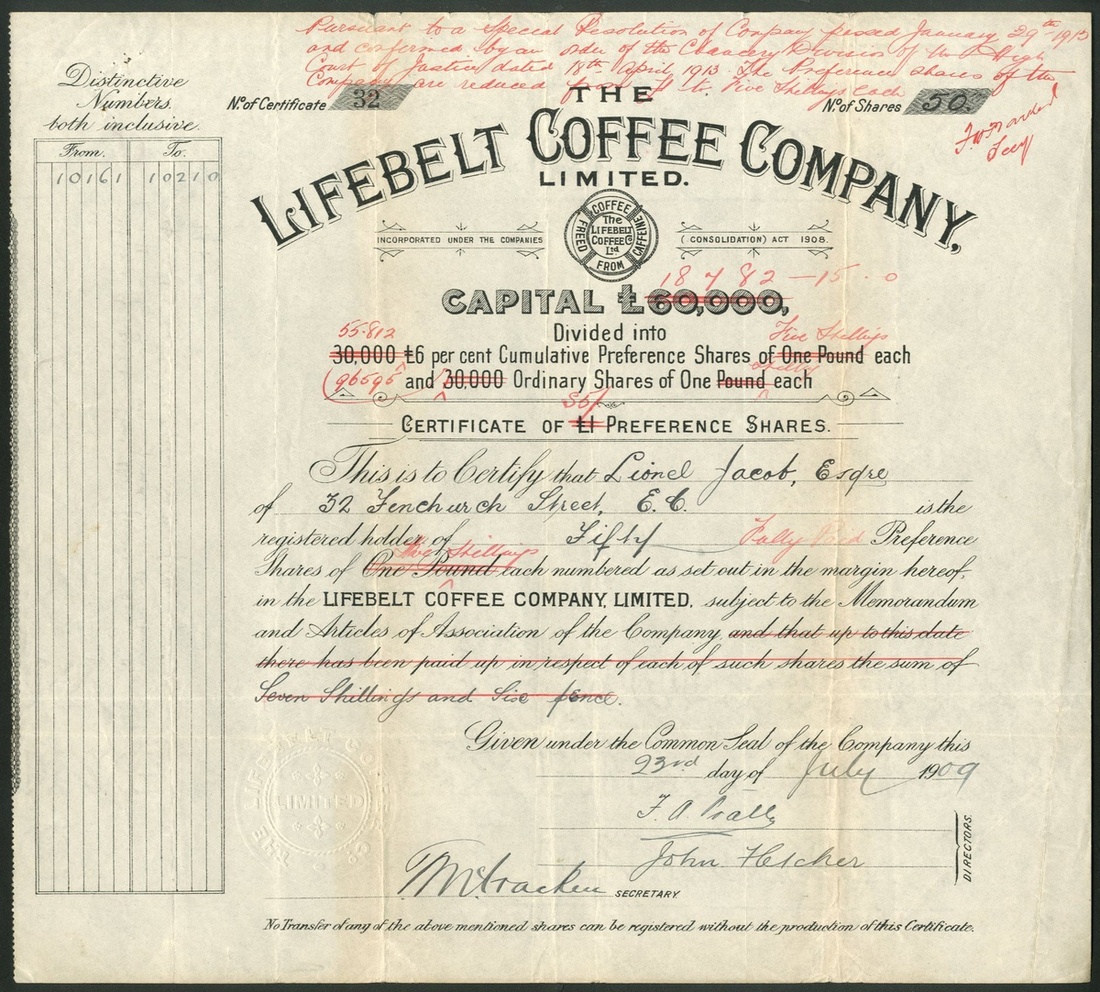 Pursuant to a Special Resolution of Company passed January 29th 1913
and confirmed by an order of the Chancery Division of the High
Court of Justice dated 18th April, 1913. The Preference shares of the
Company are reduced from £1 to Five Shillings each
Distinctive
Numbers.
both inclusive.
No. of Certificate 32
No. of Shares 50.
Secy
From. To.
10161 10210
THE
LIFEBELT COFFEE COMPANY,
LIMITED.
INCORPORATED UNDER THE COMPANIES (CONSOLIDATION) ACT 1908.
COFFEE FREED FROM CAFFEINE
The
LIFEBELT
COFFEE Co
Ltd
18782-15-0
CAPITAL £60,000,
Divided into
55.812 Five Shillings
30,000 £6 per cent Cumulative Preference Shares of One Pound each
(96595 Shilling
and 30,000 Ordinary Shares of One Pound each
S5/
CERTIFICATE OF £1 PREFERENCE SHARES.
This is to Certify that Lionel Jacob, Esqre
of 32 Fenchurch Street, E.C. is the
registered holder of Fifty Fully Paid Preference
Five Shillings
Shares of One Pound each numbered as set out in the margin hereof,
in the LIFEBELT COFFEE COMPANY, LIMITED, subject to the Memorandum
and Articles of Association of the Company, and that up to this date
there has been paid up in respect of each of such shares the sum of
Seven Shillings and Six pence.
Given under the Common Seal of the Company this
23rd day of July 1909
THE LIFEBELT COFFEE Co
LIMITED
John Fletcher
DIRECTORS.
McCracken SECRETARY
No Transfer of any of the above mentioned shares can be registered without the production of this Certificate.